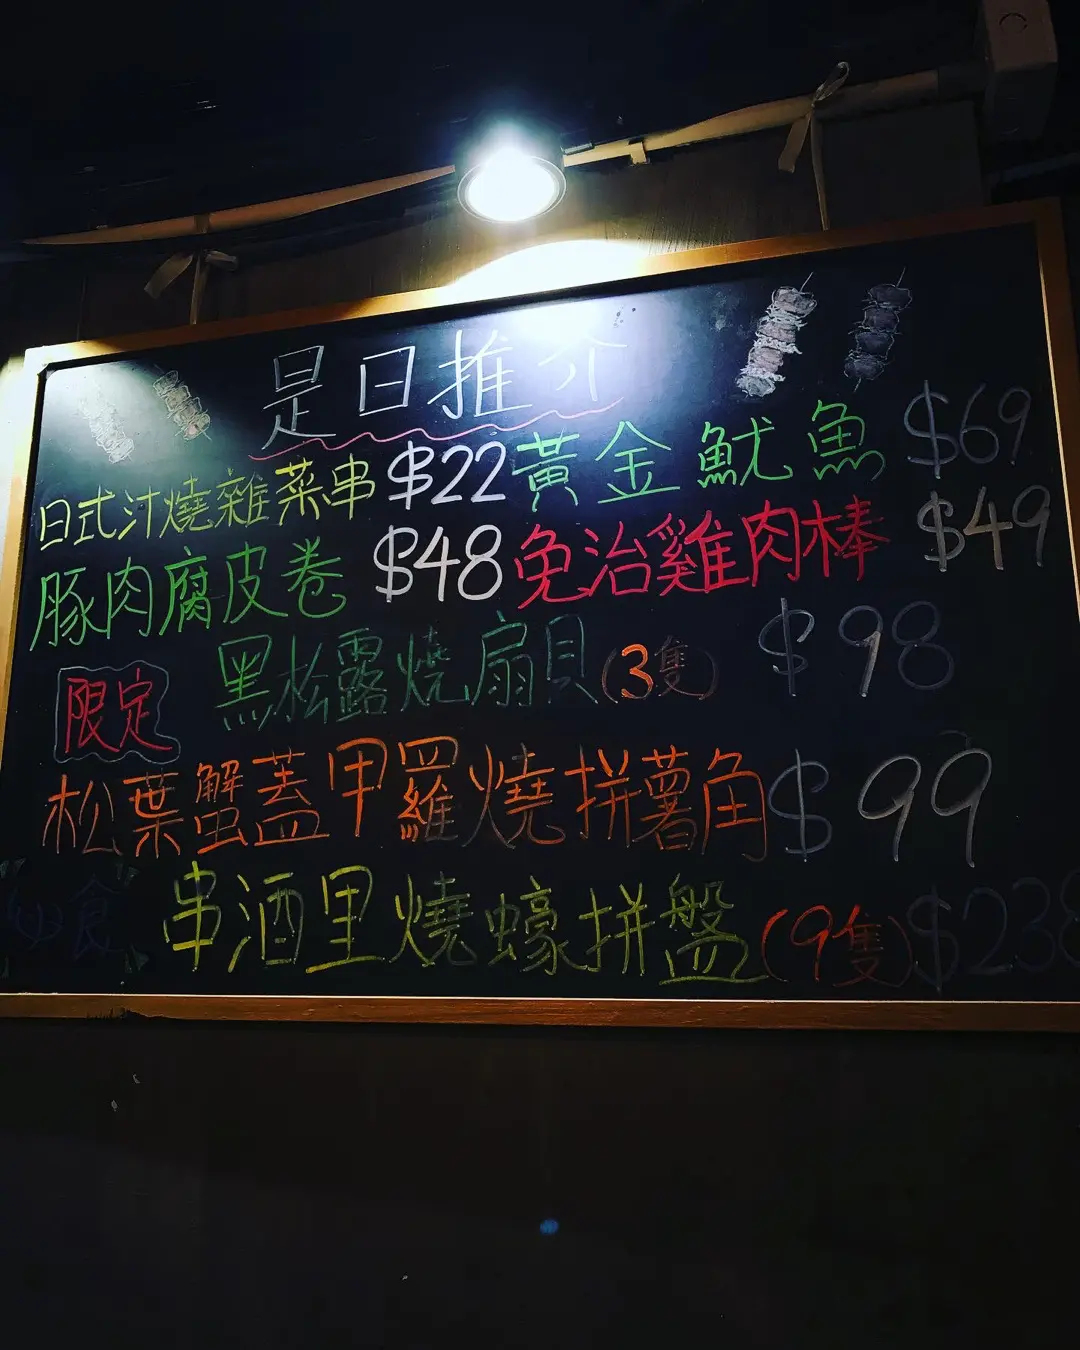 是日推介
日式汁燒雜菜串 $22 黃金魷魚 $69
豚肉腐皮卷 $48 免治雞肉棒 $49
限定 黑松露燒扇貝(3隻) $98
松葉蟹蓋甲羅燒拼薯角 $99
串酒里燒蠔拼盤(9隻) $238